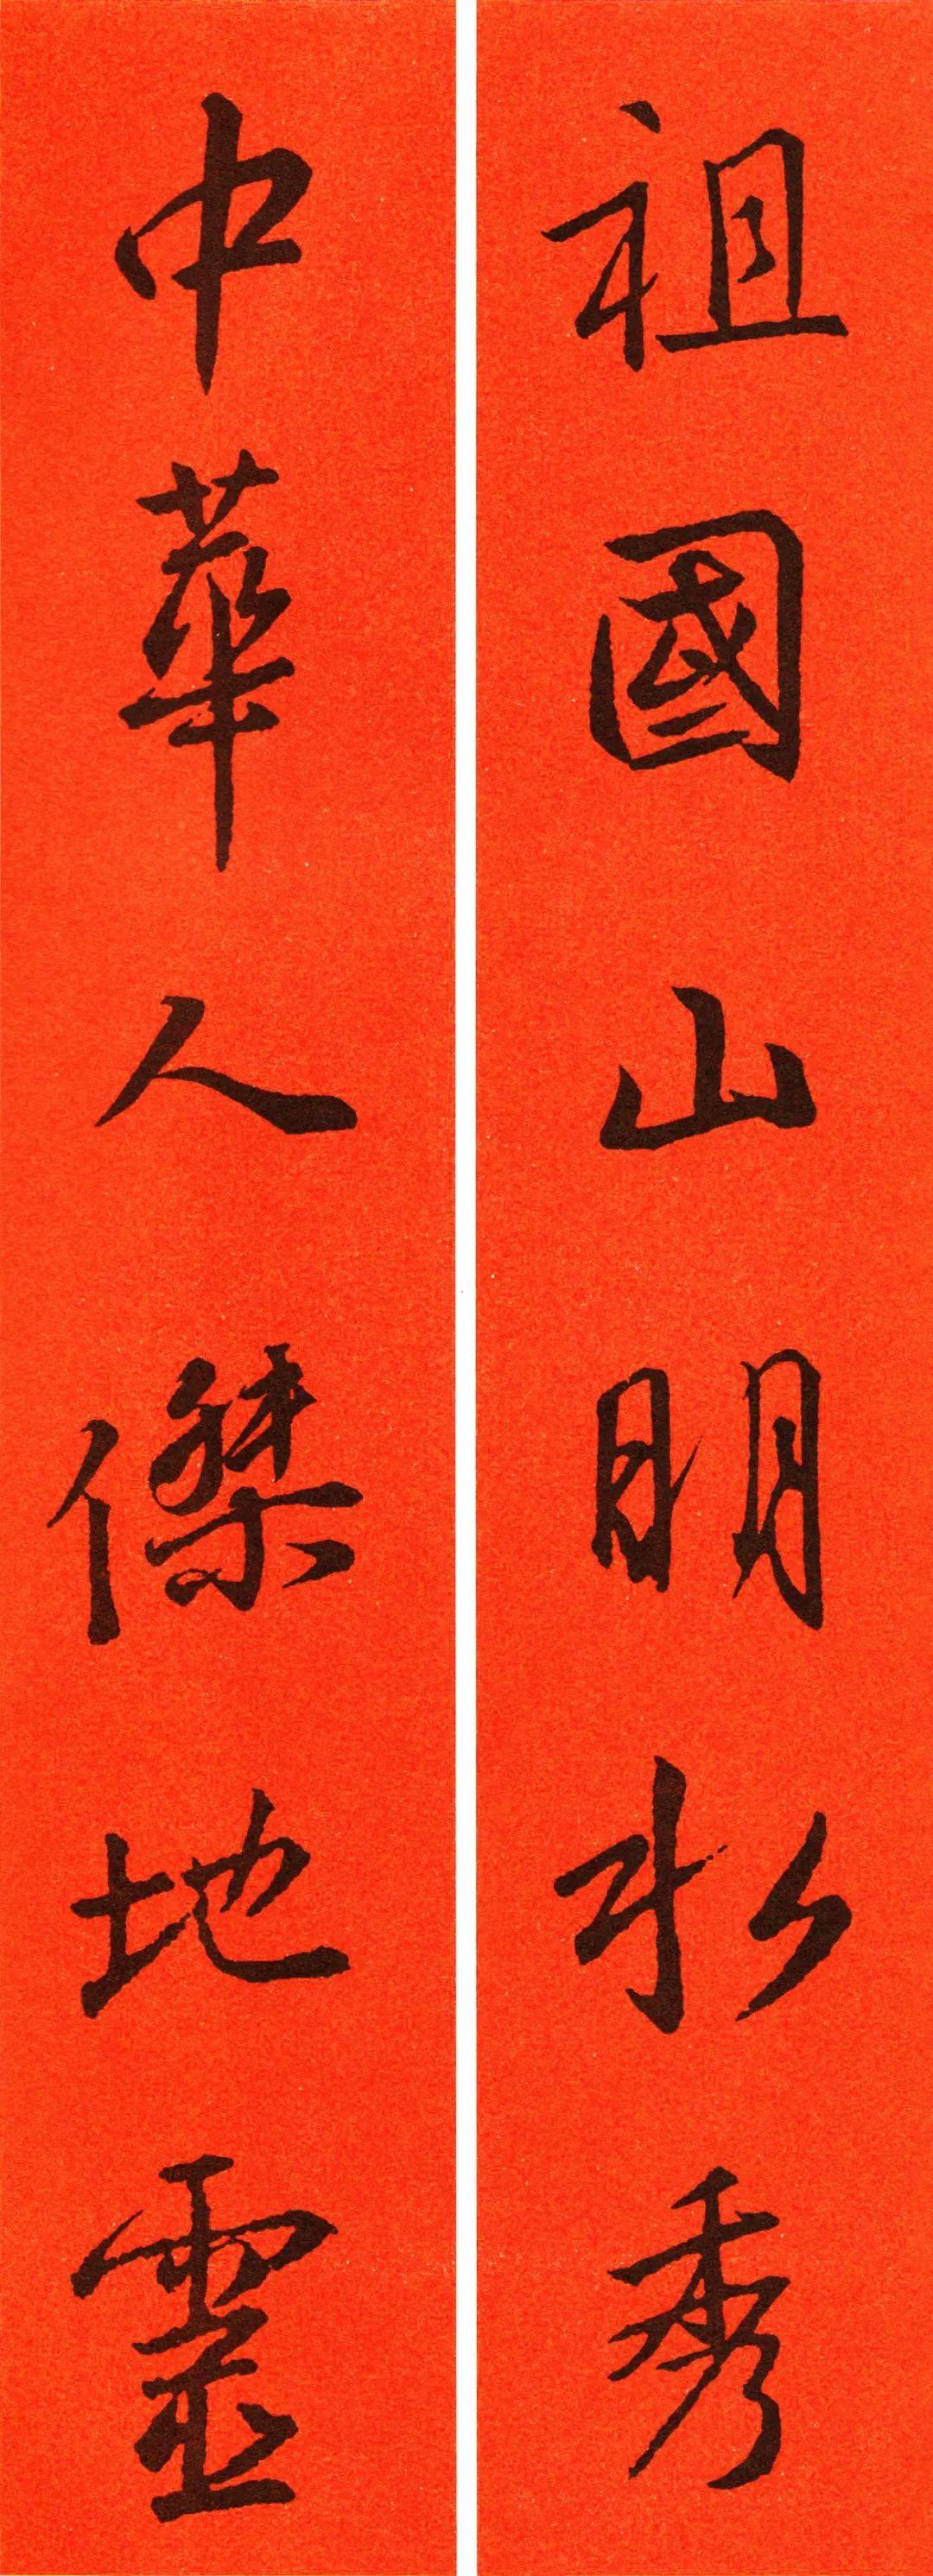 祖國山明水秀
中華人傑地靈